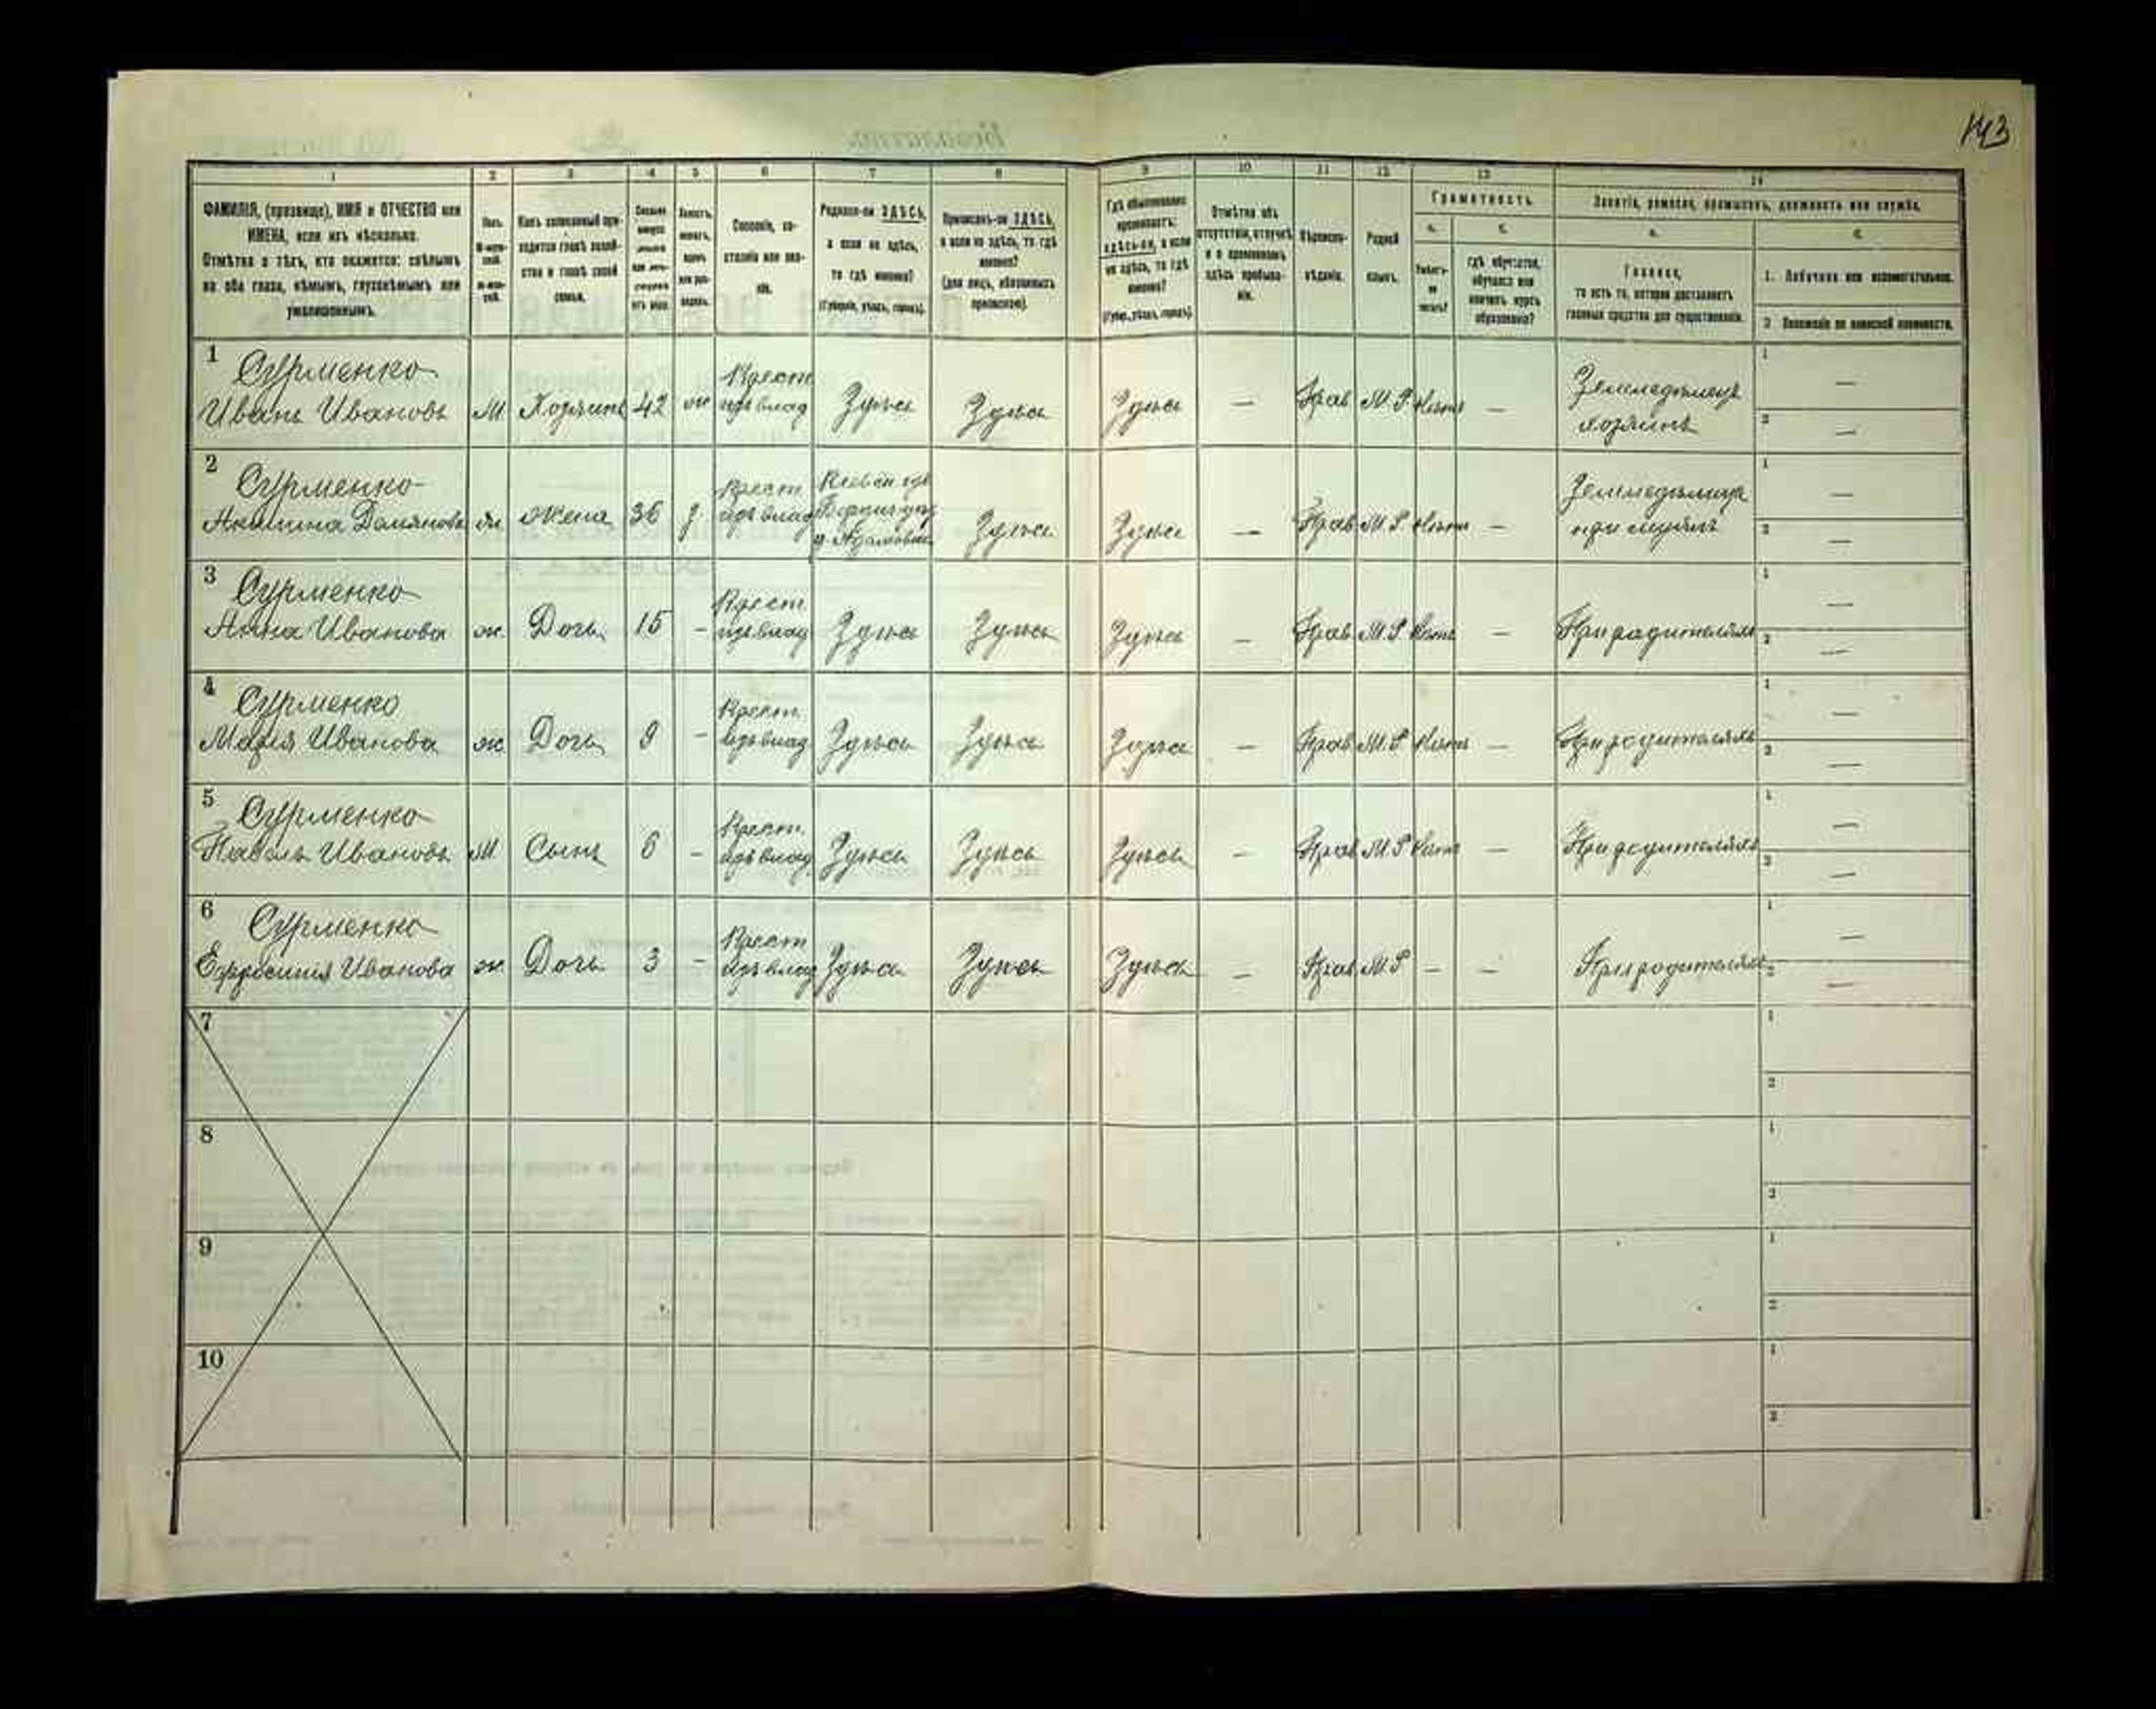 143
1 2 3 4 5 6 7 8 9 10 11 12 13 14
ФАМИЛІЯ, (прозвище), ИМЯ и ОТЧЕСТВО или
ИМЕНА, если ихъ нѣсколько.
Отмѣтка о тѣхъ, кто окажется: слѣпымъ
на оба глаза, нѣмымъ, глухонѣмымъ или
умалишеннымъ.
Полъ.
Какъ записанный при-
ходится главѣ хозяй-
ства и главѣ своей
семьи.
Сословіе, со-
стояніе или зва-
ніе.
Родился-ли ЗДѢСЬ,
а если не здѣсь,
то гдѣ именно?
(Губернія, уѣздъ, городъ).
Приписанъ-ли ЗДѢСЬ,
а если не здѣсь, то гдѣ
именно?
(для лицъ, обязанныхъ
припискою).
Гдѣ обыкновенно
проживаетъ:
здѣсь-ли, а если
не здѣсь, то гдѣ
именно?
(Губер., уѣздъ, городъ).
Отмѣтка объ
отсутствіи, отлучкѣ
и о временномъ
здѣсь пребыва-
ніи.
Вѣроиспо-
вѣданіе.
Родной
языкъ.
Грамотность
а. б.
Умѣетъ-
ли
читать?
гдѣ обучается,
обучался или
кончилъ курсъ
образованія?
Занятіе, ремесло, промыселъ, должность или служба.
а. б.
Главное,
то есть то, которое доставляетъ
главныя средства для существованія.
1. Побочное или вспомогательное.
2 Положеніе по воинской повинности.
1 Сурменко
Иванъ Ивановъ М Хозяинъ 42 ж Крест изъ влад Здѣсь Здѣсь Здѣсь — Прав М.Р. Нѣтъ — Земледѣлецъ хозяинъ 1 — 2 —
2 Сурменко
Домянова ж жена 36 з. Крест изъ влад Здѣсь Здѣсь — Прав М.Р. Нѣтъ — при мужѣ 1 — 2 —
3 Сурменко
Анна Иванова ж. Дочь 15 - Крест изъ влад Здѣсь Здѣсь Здѣсь — Прав М.Р. Нѣтъ — При родителяхъ 1 — 2 —
4 Сурменко
Марія Иванова ж. Дочь 9 - Крест. изъ влад Здѣсь Здѣсь Здѣсь — Прав М.Р. Нѣтъ — При родителяхъ 1 — 2 —
5 Сурменко
Павелъ Ивановъ М Сынъ 6 - Крест. изъ влад Здѣсь Здѣсь Здѣсь — Прав М.Р. Нѣтъ — При родителяхъ 1 — 2 —
6 Сурменко
Ефросинія Иванова ж. Дочь 3 - Крест изъ влад Здѣсь Здѣсь Здѣсь — Прав М.Р - — При родителяхъ 1 — 2 —
7 1 2
8 1 2
9 1 2
10 1 2